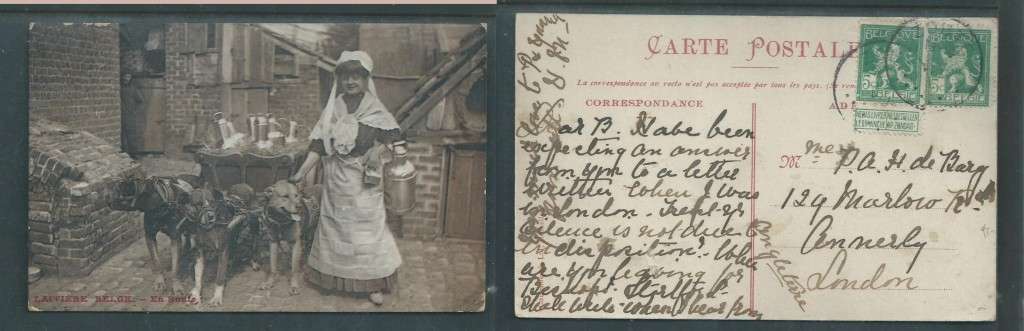 LAITIÈRE BELGE. - En Route.
CARTE POSTALE
La correspondance au recto n'est pas acceptée par tous les pays.
CORRESPONDANCE
BELGIQUE
BELGIQUE
5c
5c
BELGIË
BELGIË
Dear B. Have been
expecting an answer
from you to a letter
written when I was
in London. Trust yr
silence is not due to
indisposition. When
are you leaving for
shall write when I hear from
M
P. A. H. de Barg
129 Marlow Rd
Annerly
London
Angleterre